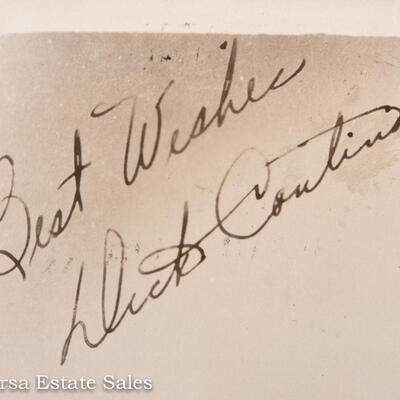 Best Wishes
Dick Contino
rsa Estate Sales